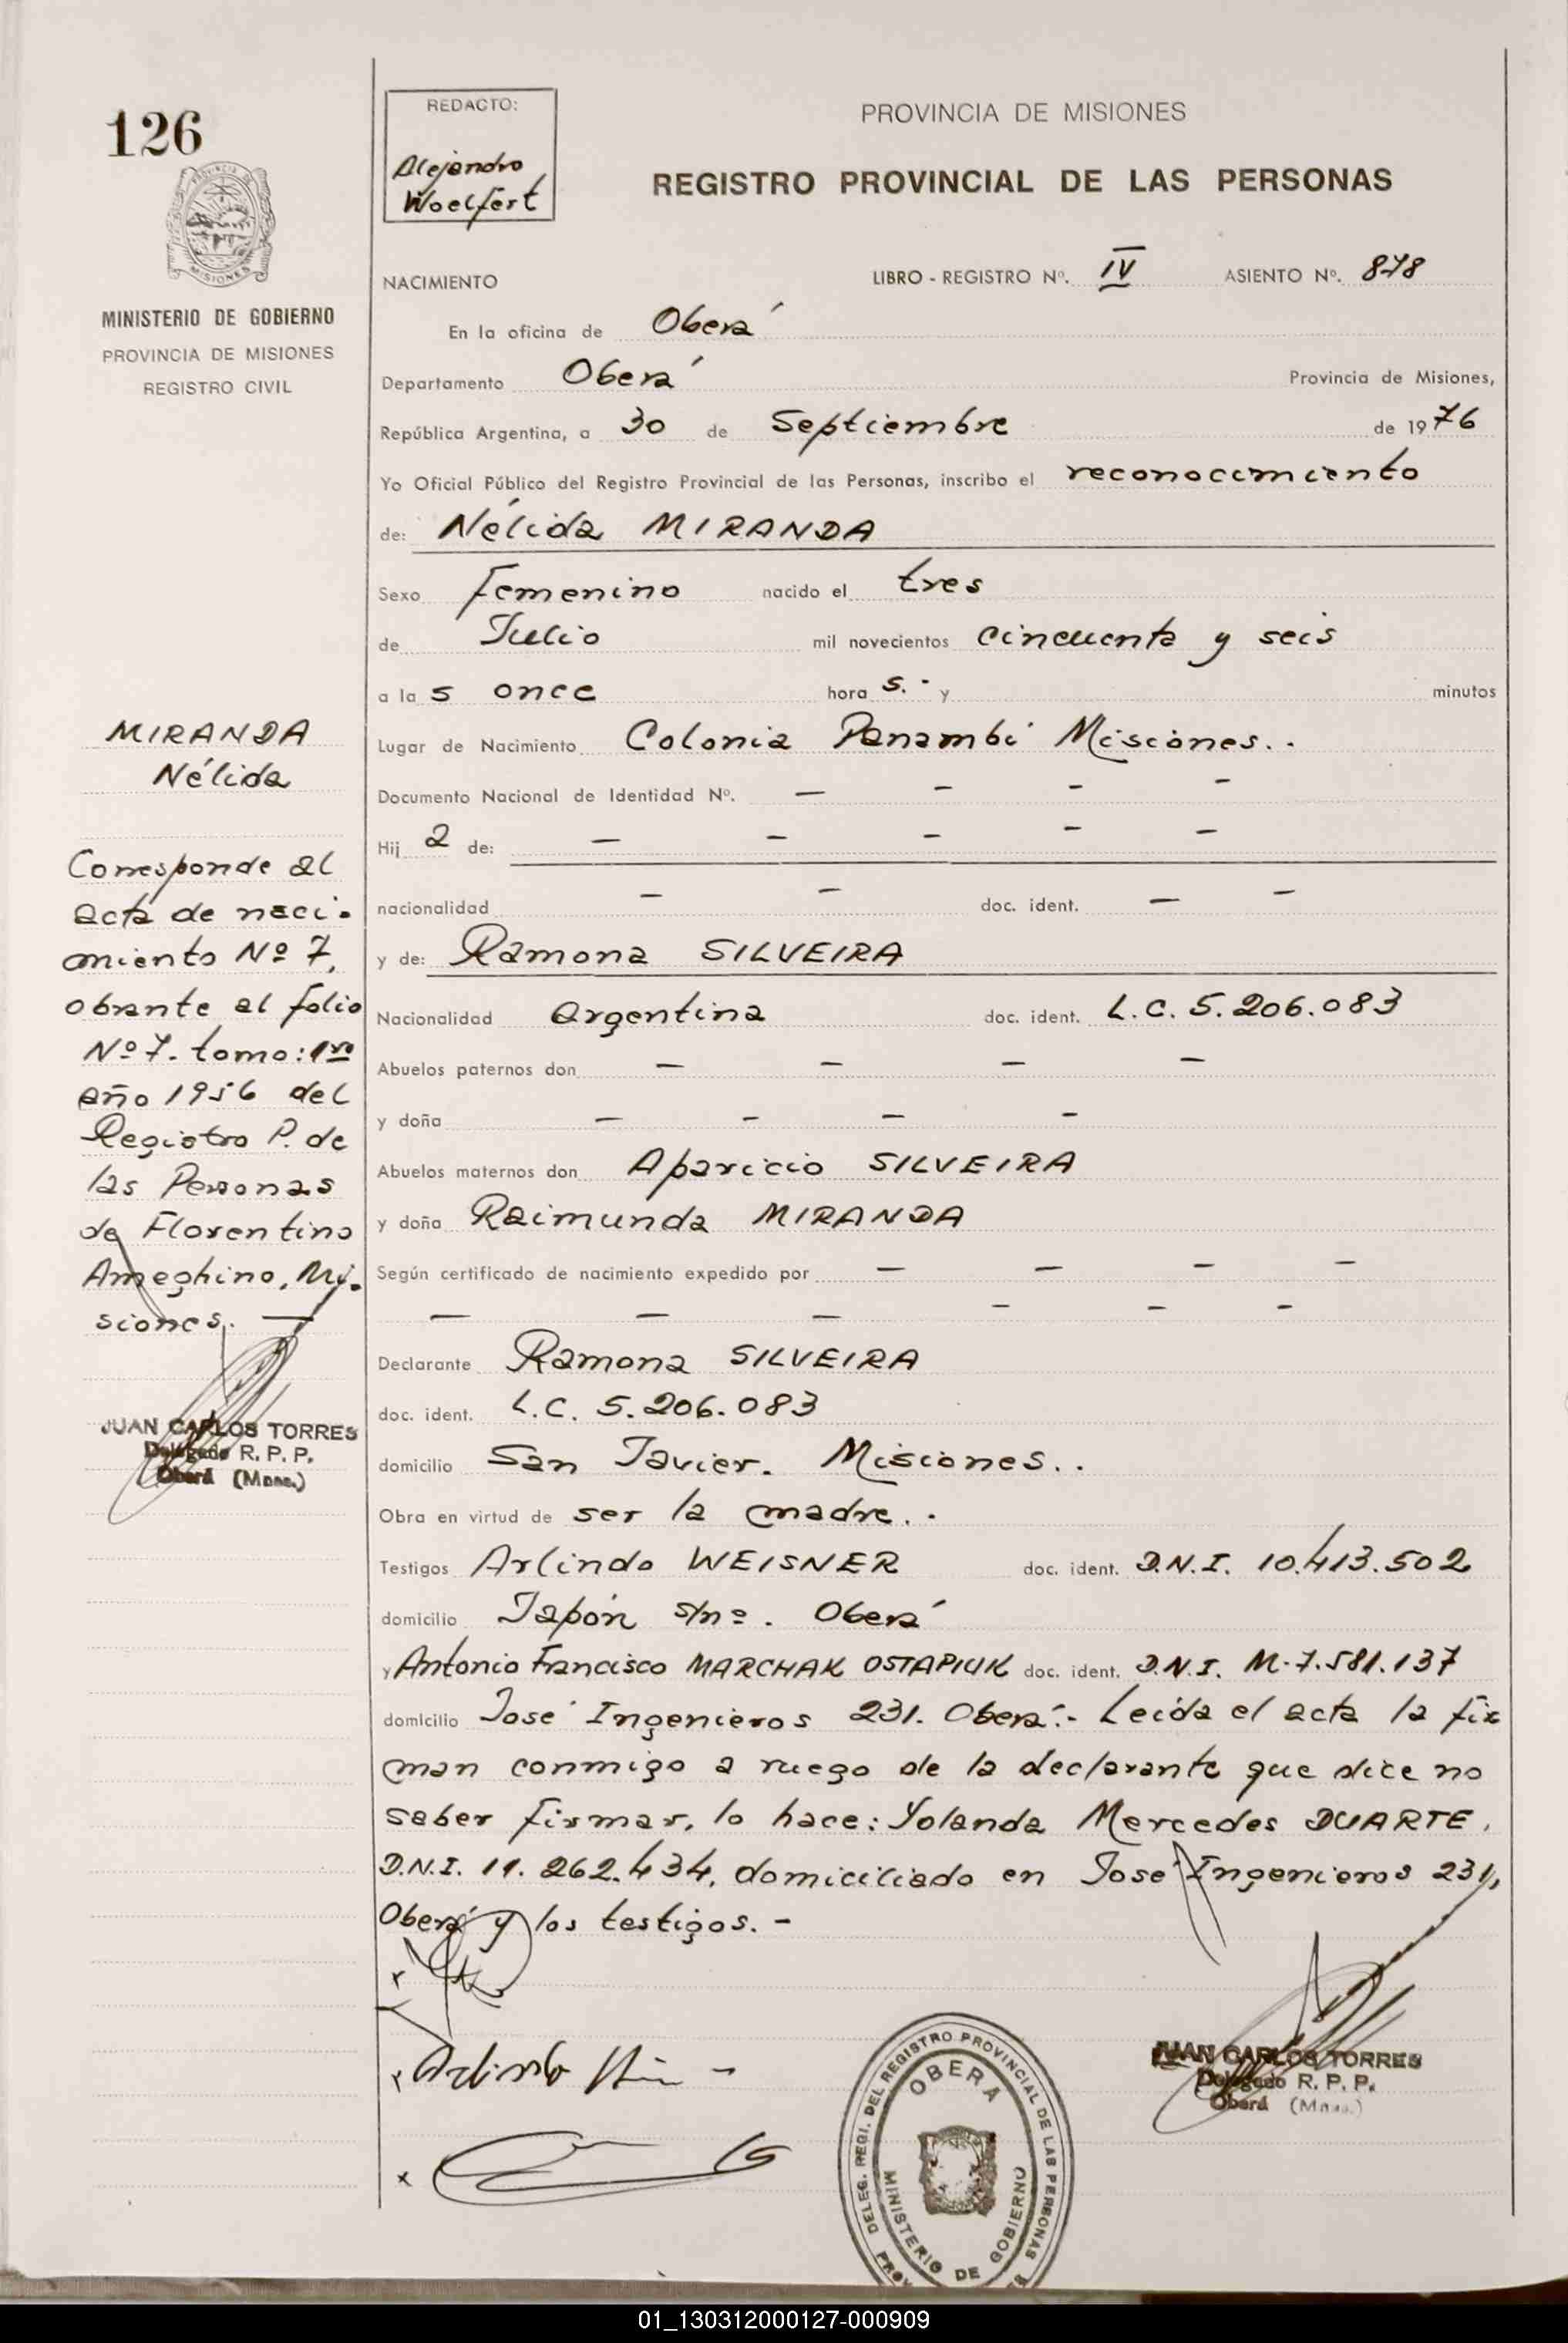 126
PROVINCIA DE
MISIONES
MINISTERIO DE GOBIERNO
PROVINCIA DE MISIONES
REGISTRO CIVIL
MIRANDA
Nélida
Corresponde al
acta de naci-
miento Nº 7,
obrante al folio
Nº 7. tomo: 1ro
año 1956 del
Registro P. de
las Personas
de Florentino
Ameghino, Mi-
siones. —
JUAN CARLOS TORRES
Delegado R. P. P.
Oberá (Mnes.)
REDACTO:
Alejandro
Woelfert
PROVINCIA DE MISIONES
REGISTRO PROVINCIAL DE LAS PERSONAS
NACIMIENTO LIBRO - REGISTRO Nº. IV ASIENTO Nº. 878
En la oficina de Oberá
Departamento Oberá Provincia de Misiones,
República Argentina, a 30 de Septiembre de 1976
Yo Oficial Público del Registro Provincial de las Personas, inscribo el reconocimiento
de: Nélida MIRANDA
Sexo Femenino nacido el tres
de Julio mil novecientos cincuenta y seis
a la s once hora s. - y minutos
Lugar de Nacimiento Colonia Panambí Misiones. .
Documento Nacional de Identidad Nº. — — — —
Hij a de: — — — — —
nacionalidad — — doc. ident. — —
y de: Ramona SILVEIRA
Nacionalidad argentina doc. ident. L.C. 5.206.083
Abuelos paternos don — — — —
y doña — — — —
Abuelos maternos don Aparicio SILVEIRA
y doña Raimunda MIRANDA
Según certificado de nacimiento expedido por — — — —
— — — — — —
Declarante Ramona SILVEIRA
doc. ident. L.C. 5.206.083
domicilio San Javier. Misiones. .
Obra en virtud de ser la madre. .
Testigos Arlindo WEISNER doc. ident. D.N.I. 10.413.502
domicilio Japón s/nº. Oberá
y Antonio Francisco MARCHAK OSTAPIUK doc. ident. D.N.I. M-7.581.137
domicilio José Ingenieros 231. Oberá.- Leída el acta la fir
man conmigo a ruego de la declarante que dice no
saber firmar, lo hace: Yolanda Mercedes DUARTE,
D.N.I. 11.262.434, domiciliado en José Ingenieros 231,
Oberá y los testigos. -
JUAN CARLOS TORRES
Delegado R. P. P.
Oberá (Mnes.)
DELEG. REGI. DEL REGISTRO PROVINCIAL DE LAS PERSONAS
OBERA
MINISTERIO DE GOBIERNO
01_130312000127-000909